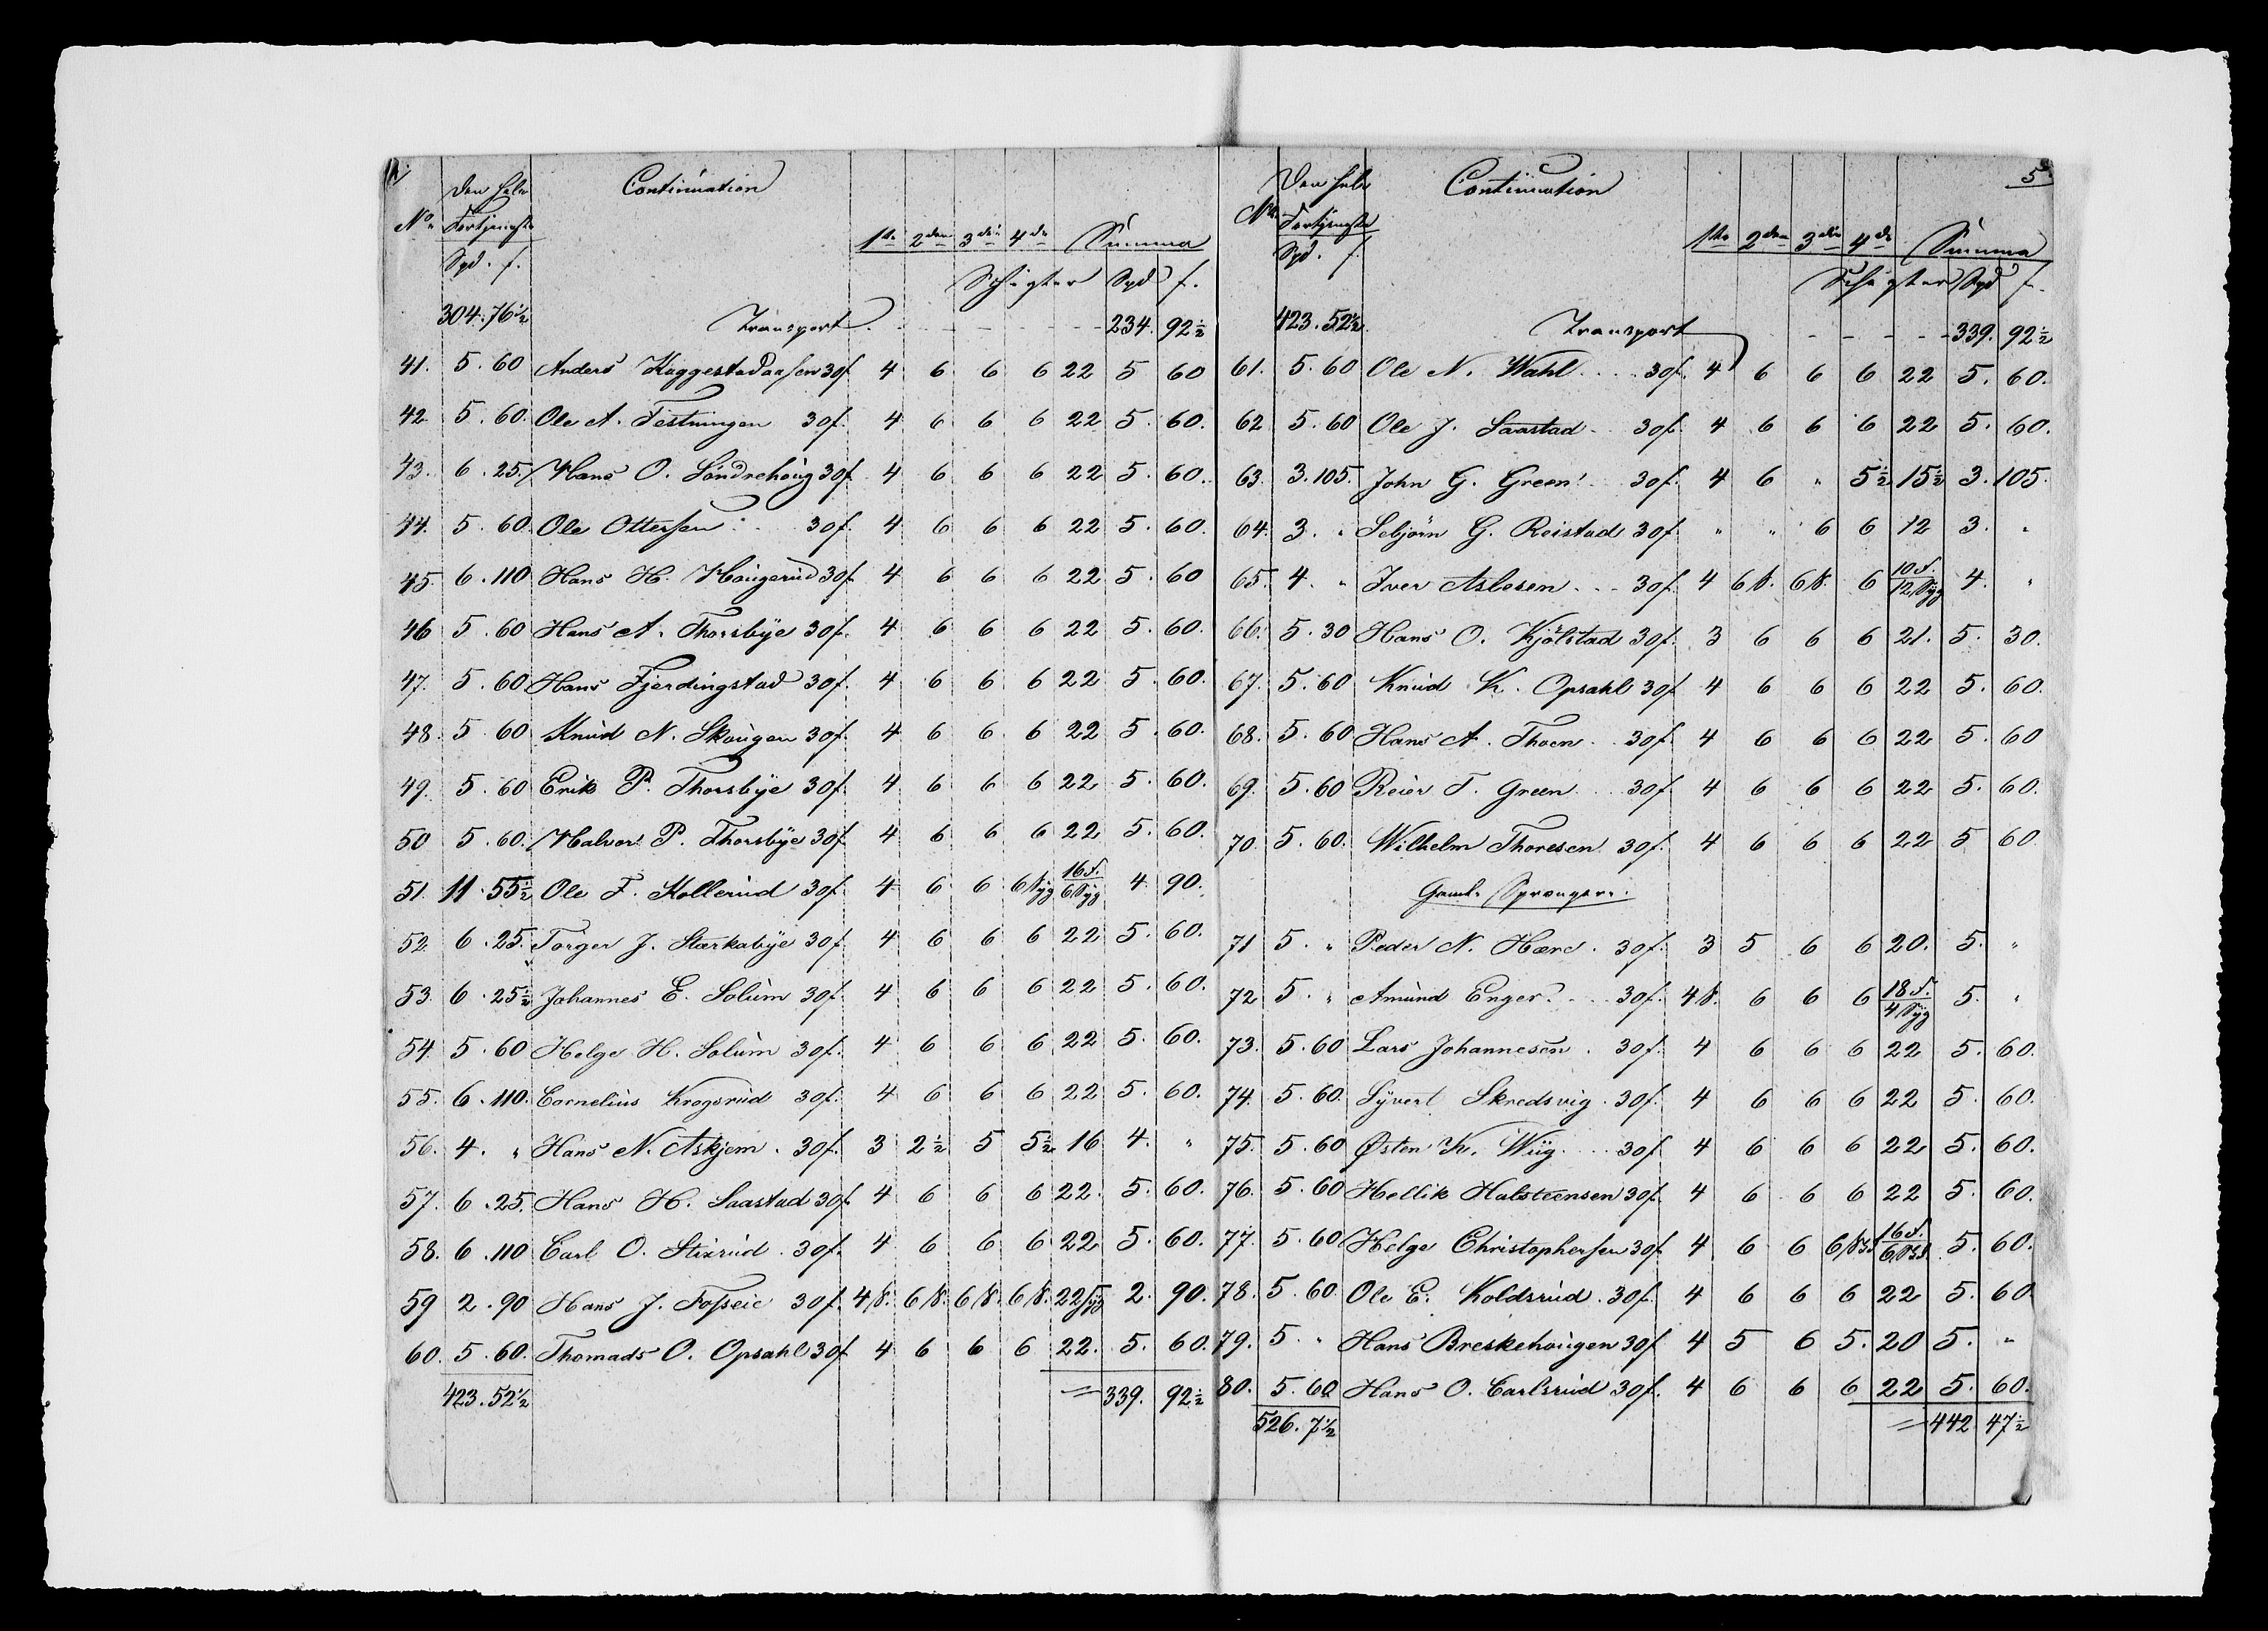 Den hele Continuation
No Fortjeneste 1ste 2den 3die 4de Summa
Spd. s. Schigter Spd s.
304.76½ Transport 234. 92½
41. 5.60 Anders Kaggestadaasen 30s. 4 6 6 6 22 5 60
42. 5.60. Ole A. Festningen 30s. 4 6 6 6 22 5. 60.
43. 6.25. Hans O. Söndrehoug 30s. 4 6 6 6 22 5. 60.
44. 5.60. Ole Ottersen 30s. 4 6 6 6 22 5. 60.
45. 6.110 Hans H. Hougerud 30s. 4 6 6 6 22 5. 60
46 5.60 Hans A. Thorsbye 30s. 4 6 6 6 22 5. 60.
47. 5.60 Hans Fjerdingstad 30s. 4 6 6 6 22 5. 60.
48. 5.60 Knud N. Skougen 30s. 4 6 6 6 22 5. 60.
49. 5.60 Erik P. Thorsbye 30s. 4 6 6 6 22 5. 60.
50 5.60. Halvor P. Thorsbye 30s. 4 6 6 6 22 5. 60.
51. 11.55½ Ole F. Kollerud 30s. 4 6 6 6 Syg 16 F. 6 Syg 4. 90.
52. 6.25. Torger J. Stærkabye 30s. 4 6 6 6 22 5. 60.
53. 6.25½ Johannes E. Solum 30s. 4 6 6 6 22 5. 60.
54. 5.60 Helge H. Solum 30s. 4 6 6 6 22 5. 60.
55. 6.110. Cornelius Krogsrud 30s. 4 6 6 6 22 5. 60.
56. 4. " Hans N. Askjem. 30s. 3 2½ 5 5½ 16 4. "
57. 6.25. Hans H. Saastad 30s. 4 6 6 6 22. 5. 60.
58. 6.110 Carl O. Stixrud. 30s. 4 6 6 6 22 5. 60.
59 2.90 Hans J. Fosseie 30s. 4 S. 6 S. 6 S. 6 S. 22 Syg 2. 90.
60. 5.60. Thomads O. Opsahl 30s. 4 6 6 6 22. 5. 60.
423.52½ = 339. 92½
5
Den hele Continuation
No. Fortjeneste 1ste 2den 3die 4de Summa
Spd. s. Schigter Spd s.
423.52½ Transport 339. 92½
61. 5.60 Ole N. Wahl 30s. 4 6 6 6 22 5. 60.
62. 5.60 Ole J. Saastad 30s. 4 6 6 6 22 5. 60.
63. 3.105. John G. Green 30s. 4 6 " 5½ 15½ 3. 105.
64. 3. " Sebjörn G. Reistad 30s. " " 6 6 12 3. "
65. 4. " Iver Aslesen 30s. 4 6 S. 6 S. 6 10 F. 12 Syg 4. "
66. 5.30 Hans O. Kjölstad 30s. 3 6 6 6 21. 5. 30.
67. 5.60 Knud K. Opsahl 30s. 4 6 6 6 22 5. 60.
68. 5.60 Hans A. Thoen 30s. 4 6 6 6 22 5. 60
69. 5.60 Reier T. Green 30s. 4 6 6 6 22 5. 60.
70. 5.60. Wilhelm Thoresen 30s. 4 6 6 6 22 5 60
Gaml. Sprænger.
71 5. " Peder N. Hære. 30s. 3 5 6 6 20. 5. "
72 5. " Amund Enger. 30s. 4 S. 6 6 6 18 F. 4 Syg 5. "
73. 5.60 Lars Johannesen. 30s. 4 6 6 6 22 5. 60.
74. 5.60. Syvert Skredsvig. 30s. 4 6 6 6 22 5. 60.
75. 5.60 Østen K. Wüg 30s. 4 6 6 6 22 5. 60.
76. 5.60 Hellik Halsteensen 30s. 4 6 6 6 22 5. 60.
77. 5.60 Helge Christophersen 30s. 4 6 6 6 16 F. 5. 60.
78. 5.60 Ole E. Koldsrud. 30s. 4 6 6 6 22 5. 60
79. 5. " Hans Breskehougen 30s. 4 5 6 5. 20 5. "
80. 5.60 Hans O. Carlsrud 30s. 4 6 6 6 22 5. 60.
526.7½ = 442 47½